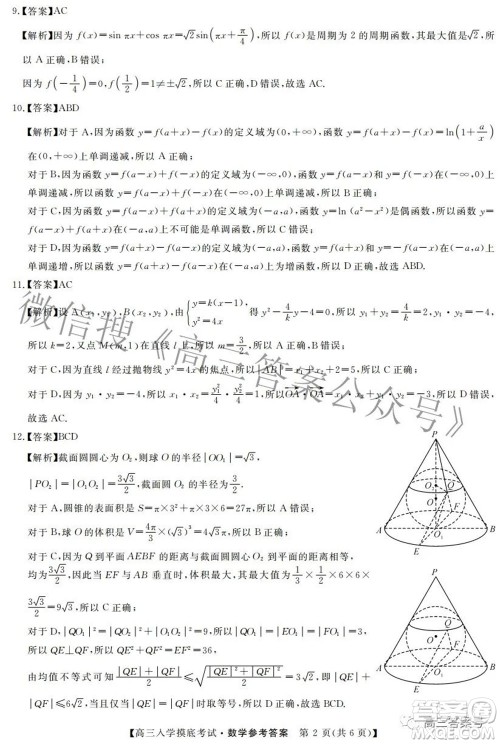 9.【答案】AC
【解析】因为 f(x)=sin πx+cos πx=√2sin(πx+π/4),所以 f(x)是周期为 2 的周期函数,其最大值是√2,所以 A 正确,B 错误;
因为 f(-1/4)=0,f(1/2)=1≠±√2,所以 C 正确,D 错误,故选 AC.
10.【答案】ABD
【解析】对于 A,因为函数 y=f(a+x)-f(x)的定义域为(0,+∞),所以函数 y=f(a+x)-f(x)=ln(1+a/x)
在(0,+∞)上单调递减,所以 A 正确;
对于 B,因为函数 y=f(a-x)+f(-x)的定义域为(-∞,0),所以函数 y=f(a-x)+f(-x)在(-∞,0)上
单调递减,所以 B 正确;
对于 C,因为函数 y=f(a+x)+f(a-x)的定义域为(-a,a),因为函数 y=ln(a²-x²)是偶函数,所以函数
y=f(a+x)+f(a-x)在(-a,a)上不可能是单调函数,所以 C 错误;
对于 D,因为函数 y=f(a+x)-f(a-x)的定义域为(-a,a),函数 y=f(a+x)与 y=-f(a-x)在(-a,a)上单
调递增,所以 y=f(a+x)-f(a-x)在(-a,a)上为增函数,所以 D 正确,故选 ABD.
11.【答案】AC
【解析】设 A(x₁,y₁),B(x₂,y₂),由{y=k(x-1), y²=4x 得 y²-4/k y-4=0,所以 y₁+y₂=4/k=2,y₁·y₂=-4,
所以 k=2,又点 M(m,1)在直线 l 上,所以 m=3/2,所以 A 正确,B 错误;
对于 C,因为直线 l 经过抛物线 y²=4x 的焦点,所以|AB|=x₁+x₂+2=5,所以 C 正确;
对于 D,因为 y₁·y₂=-4,所以 x₁·x₂=y₁²/4·y₂²/4=1,所以OA·OB=x₁·x₂+y₁·y₂=1-4=-3,所以 D 错误,
故选 AC.
12.【答案】BCD
【解析】截面圆圆心为 O₂,则球 O 的半径|OO₁|=√3,
|PO₂|=|O₁O₂|=3√3/2,|O₂Q|=3/2,
对于 A,圆锥的表面积是 S=π×3²+π×3×6=27π,所以 A 错误;
对于 B,球 O 的体积是 V=4π/3×(√3)³=4√3π,所以 B 正确;
对于 C,因为 Q 到平面 AEBF 的距离与截面圆圆心 O₂ 到平面的距离
均为3√3/2,因此当 EF 与 AB 垂直时,体积最大,最大值为1/3×1/2×6×6×
3√3/2=9√3,所以 C 正确;
对于 D,|QO₁|²=|QO₂|²+|O₁O₂|²=9,所以|QO₁|=|EO₁|=|FO₁|=3,
所以 QE⊥QF,所以 QE²+QF²=EF²=36,
由均值不等式可知(|QE|+|QF|)/2≤√((|QE|²+|QF|²)/2)=3√2,即|QE|
+|QF|≤6√2,当且仅当|QE|=|QF|时,等号成立,所以 D 正确,故选
BCD.
P
O₂
Q
O
A
O₁
B
E
P
O₂
Q
O
A
O₁
B
E
【高三入学摸底考试·数学参考答案 第 2 页(共 6 页)】
微信搜《高三答案公众号》
高三答案号